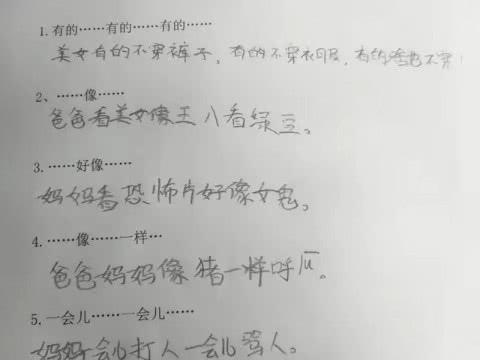 1.有的……有的……有的……
美女有的不穿裤子,有的不穿衣服,有的啥也不穿!
2、……像……
爸爸看美女像王八看绿豆。
3.……好像……
妈妈看恐怖片好像女鬼。
4.……像……一样…
爸爸妈妈像猪一样呼瓜。
5.一会儿……一会儿……
妈妈一会儿打人一会儿骂人。